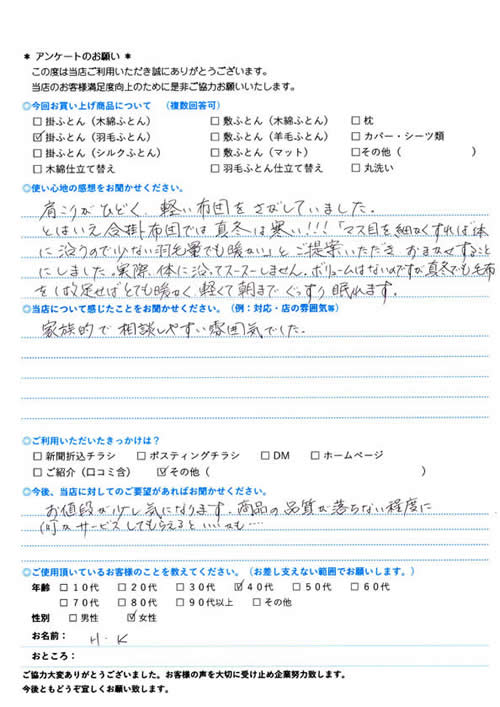 ＊ アンケートのお願い ＊
この度は当店ご利用いただき誠にありがとうございます。
当店のお客様満足度向上のために是非ご協力お願いいたします。
◎今回お買い上げ商品について （複数回答可）
□ 掛ふとん（木綿ふとん） □ 敷ふとん（木綿ふとん） □ 枕
☑ 掛ふとん（羽毛ふとん） □ 敷ふとん（羊毛ふとん） □ カバー・シーツ類
□ 掛ふとん（シルクふとん） □ 敷ふとん（マット） □その他（ ）
□ 木綿仕立て替え □ 羽毛ふとん仕立て替え □ 丸洗い
◎使い心地の感想をお聞かせください。
肩こりがひどく、軽い布団をさがしていました。
とはいえ合掛布団では真冬は寒い!!!「マス目を細かくすれば体
に沿うので少ない羽毛量でも暖かい」とご提案いただきおまかせすること
にしました。実際、体に沿ってスースーしません。ボリュームはないのですが真冬でも毛布
を1枚足せばとても暖かく軽くて朝までぐっすり眠れます。
◎当店について感じたことをお聞かせください。（例：対応・店の雰囲気等）
家族的で相談しやすい雰囲気でした。
◎ご利用いただいたきっかけは？
□ 新聞折込チラシ □ ポスティングチラシ □ DM □ ホームページ
□ ご紹介（口コミ含） ☑その他（ ）
◎今後、当店に対してのご要望があればお聞かせください。
お値段が少し気になります。商品の品質が落ちない程度に
何かサービスしてもらえるといいかも…
◎ご使用頂いているお客様のことを教えてください。（お差し支えない範囲でお願いします。）
年齢 □ 10代 □ 20代 □ 30代 ☑ 40代 □ 50代 □ 60代
□ 70代 □ 80代 □ 90代以上 □ その他
性別 □ 男性 ☑ 女性
お名前： H・K
おところ：
ご協力大変ありがとうございました。お客様の声を大切に受け止め企業努力致します。
今後ともどうぞ宜しくお願い致します。